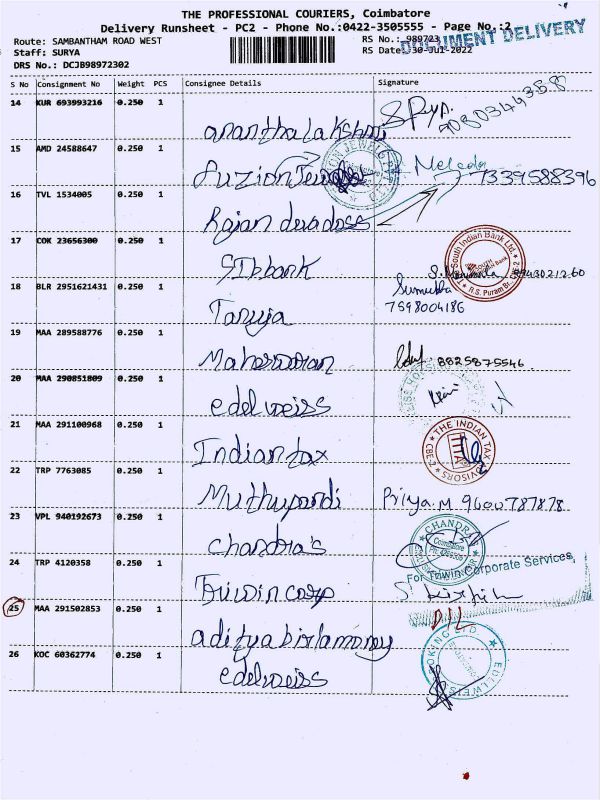 THE PROFESSIONAL COURIERS, Coimbatore
Delivery Runsheet - PC2 - Phone No.:0422-3505555 - Page No.:2
DOCUMENT DELIVERY
Route: SAMBANTHAM ROAD WEST RS No.: 989723
Staff: SURYA RS Date: 30-Jul-2022
DRS No.: DCJB98972302
S No Consignment No Weight PCS Consignee Details Signature
14 KUR 693993216 0.250 1
ananthalakshmi
15 AMD 24588647 0.250 1
Fuzion Jewels 7339588396
16 TVL 1534005 0.250 1
Rajan devadoss
17 COK 23656300 0.250 1
SIbbank
The South Indian Bank Ltd.
R.S. Puram Br. CBE-2
18 BLR 2951621431 0.250 1
Sumukha
7598004186
Tanuja
19 MAA 289588776 0.250 1
Maheswaran 8825875546
20 MAA 290851809 0.250 1
edelweiss
21 MAA 291100968 0.250 1
Indian tax
THE INDIAN TAX ADVISORS CBE-2
22 TRP 7763085 0.250 1
Muthupandi Priya.M 9600787878
23 VPL 940192673 0.250 1
chandra's
CHANDRA
Coimbatore
24 TRP 4120358 0.250 1
For Triwin Corporate Services,
Triwin corp
25 MAA 291502853 0.250 1
D/L
adityabirlamoney
26 KOC 60362774 0.250 1
edelweiss
EDELWEISS BROKING LTD.